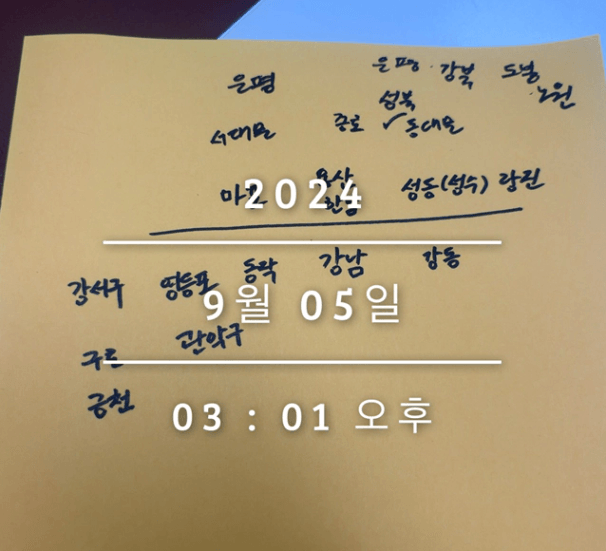 은평 강북 도봉
은평 노원
성북
서대문 종로 ✓동대문
마포 용산 성동(성수) 광진
2024
한남
강서구 영등포 동작 강남 강동
9월 05일
관악구
구로
금천
03 : 01 오후